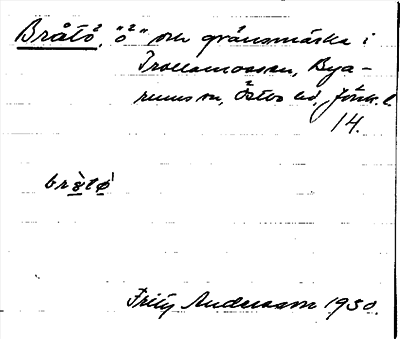 Bråtö, "ö" och gränsmärke i
Trollamossen, Bya-
rums sn, Östbo hd, Jönk. l.
14.
bråtø
Fritz Andersson 1930.